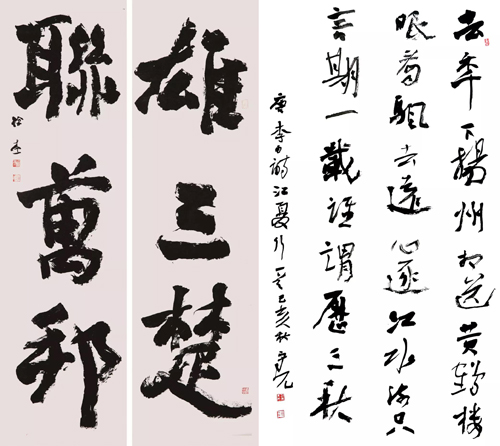 雄三楚
聯萬邦
去年下揚州相送黃鶴樓
眼看颿去遠心逐江水流只
言期一載誰謂歷三秋
唐李白詩江夏行己亥秋